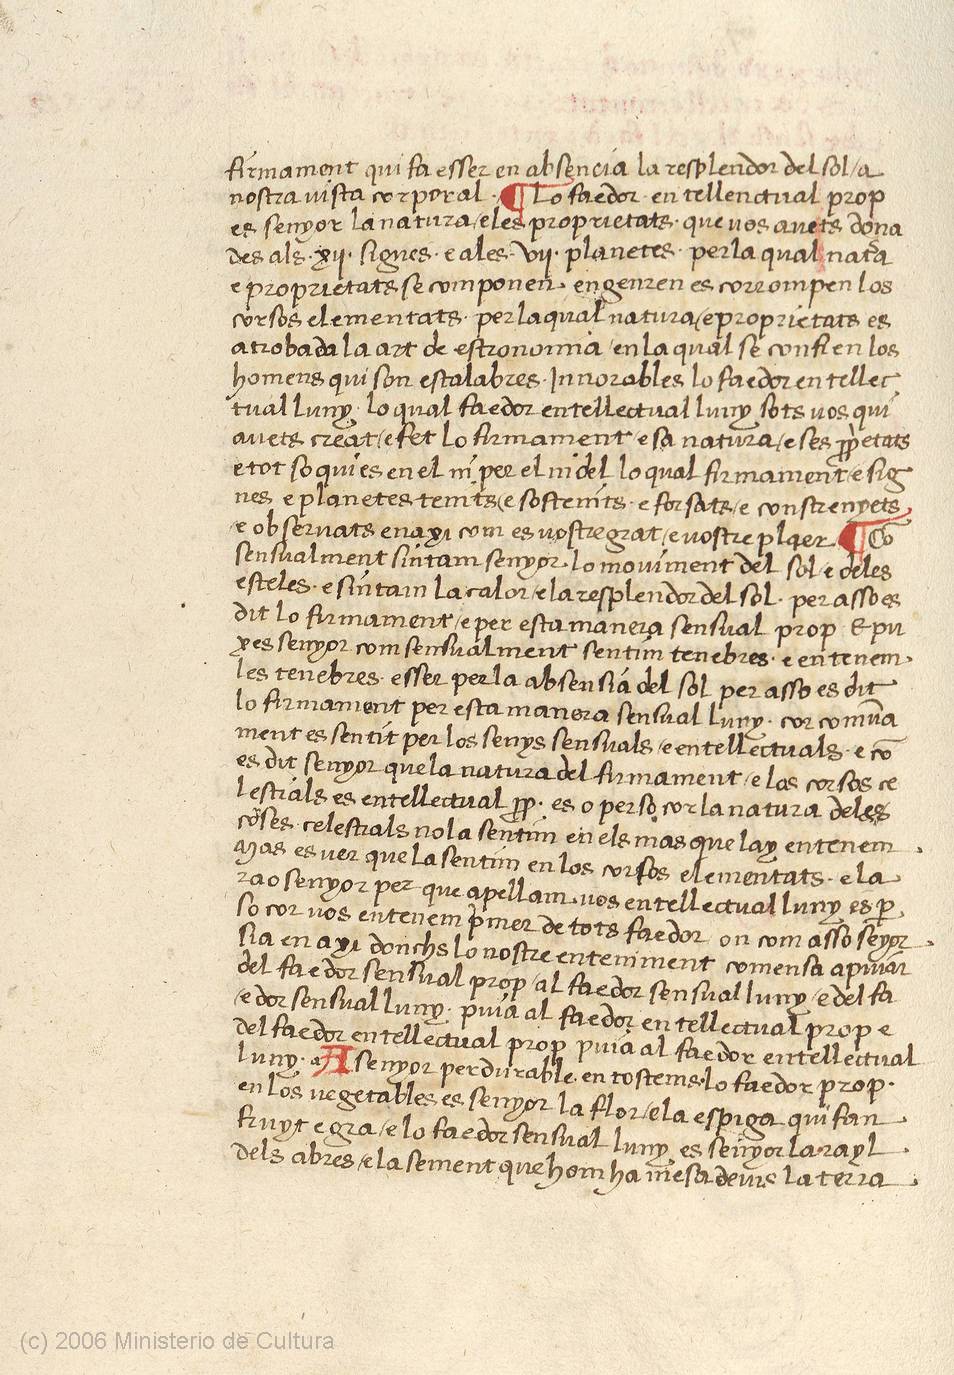 firmament qui fa esser en absencia la resplendor del sol / a
nostra vista corporal · ¶ Lo faedor · entellenctual prop
es senyor la natura / e les proprietats · que vos avets dona
des als · xij · signes · e a les · vij · planetes · per la qual nat̃a
e proprietats se componen · engenren es corrompen los
corsos elementats · per la qual natura / e proprietats es
atrobada la art de estronomia / en la qual se confien los
homens qui son estalabres · Innorables lo faedor entellec
tual luny · lo qual faedor entellectual luny sots vos qui
avets creat / e fet lo firmament e sa natura / e ses p̱p̱etats
e tot so qui es en el ni per el ni del lo qual firmament / e sig
nes e planetes temits / e sostenits · e forsats / e constrenyets
e observats en axi com es vostre grat / e vostre plaer ¶ Co
sensualment sintam senyor · lo moviment del sol e de les
esteles · e sintam la calor / e la resplendor del sol · per asso es
dit lo firmament / e per esta manera sensual prop E pu
xes senyor com sensualment sentim tenebres · e entenem ·
les tenebres · esser per la absensia del sol per asso es dit
lo firmament per esta manera sensual luny · cor comũa
ment es sentit per los senys sensuals / e entellectuals · e cõ
es dit senyor que la natura del firmament / e los corsos ce
lestials es entellectual p̱p̱ · es o per so cor la natura de les
coses · celestials no la sentim en els mas que lay entenem ·
Mas es ver que la sentim en los corsos elementats · e la
rao senyor per que apellam · vos entellectual luny es p̱
so cor vos entenem p̃mer de tots faedor on com asso seyor ·
sia en axi donchs lo nostre enteniment comensa a puiar
del faedor sensual prop / al faedor sensual luny / e del fa
/ edor sensual luny · puia al faedor entellectual prop e
del faedor entellectual prop puia al faedor entellectual
luny · A senyor perdurable · en tostems · lo faedor prop ·
en los vegetables es senyor la flor / e la espiga qui fan ·
fruyt e gra / e lo faedor sensual luny es senyor la rayl ·
dels abres / e la sement que hom ha mesa devis la terra ·
(c) 2006 Ministerio de Cultura